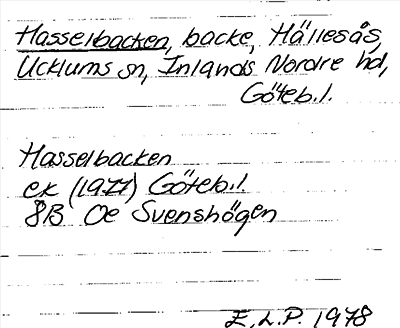 Hasselbacken, backe, Hällesås,
Ucklums sn, Inlands Nordre hd,
Göteb.l.
Hasselbacken
ek (1977) Göteb.l.
8B 0e Svenshögen
E.L.P. 1978